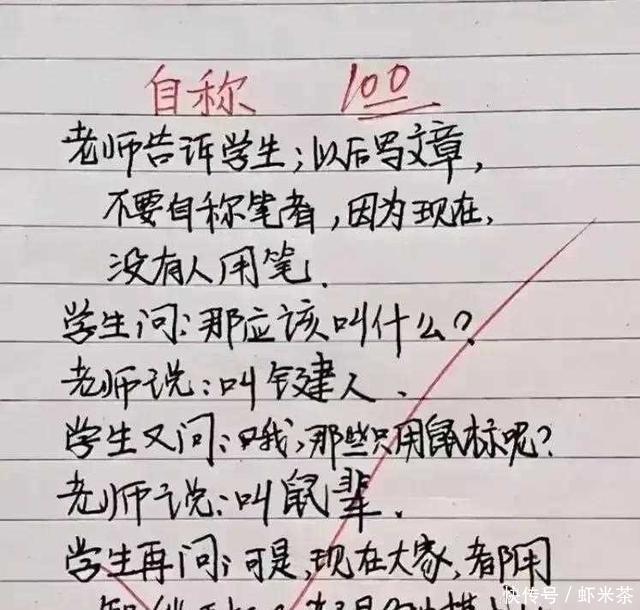 自称 100
老师告诉学生；以后写文章，
不要自称笔者，因为现在，
没有人用笔．
学生问：那应该叫什么？
老师说：叫键人．
学生又问：哦，那些只用鼠标呢？
老师说：叫鼠辈．
学生再问；可是，现在大家，都用
快传号／虾米茶